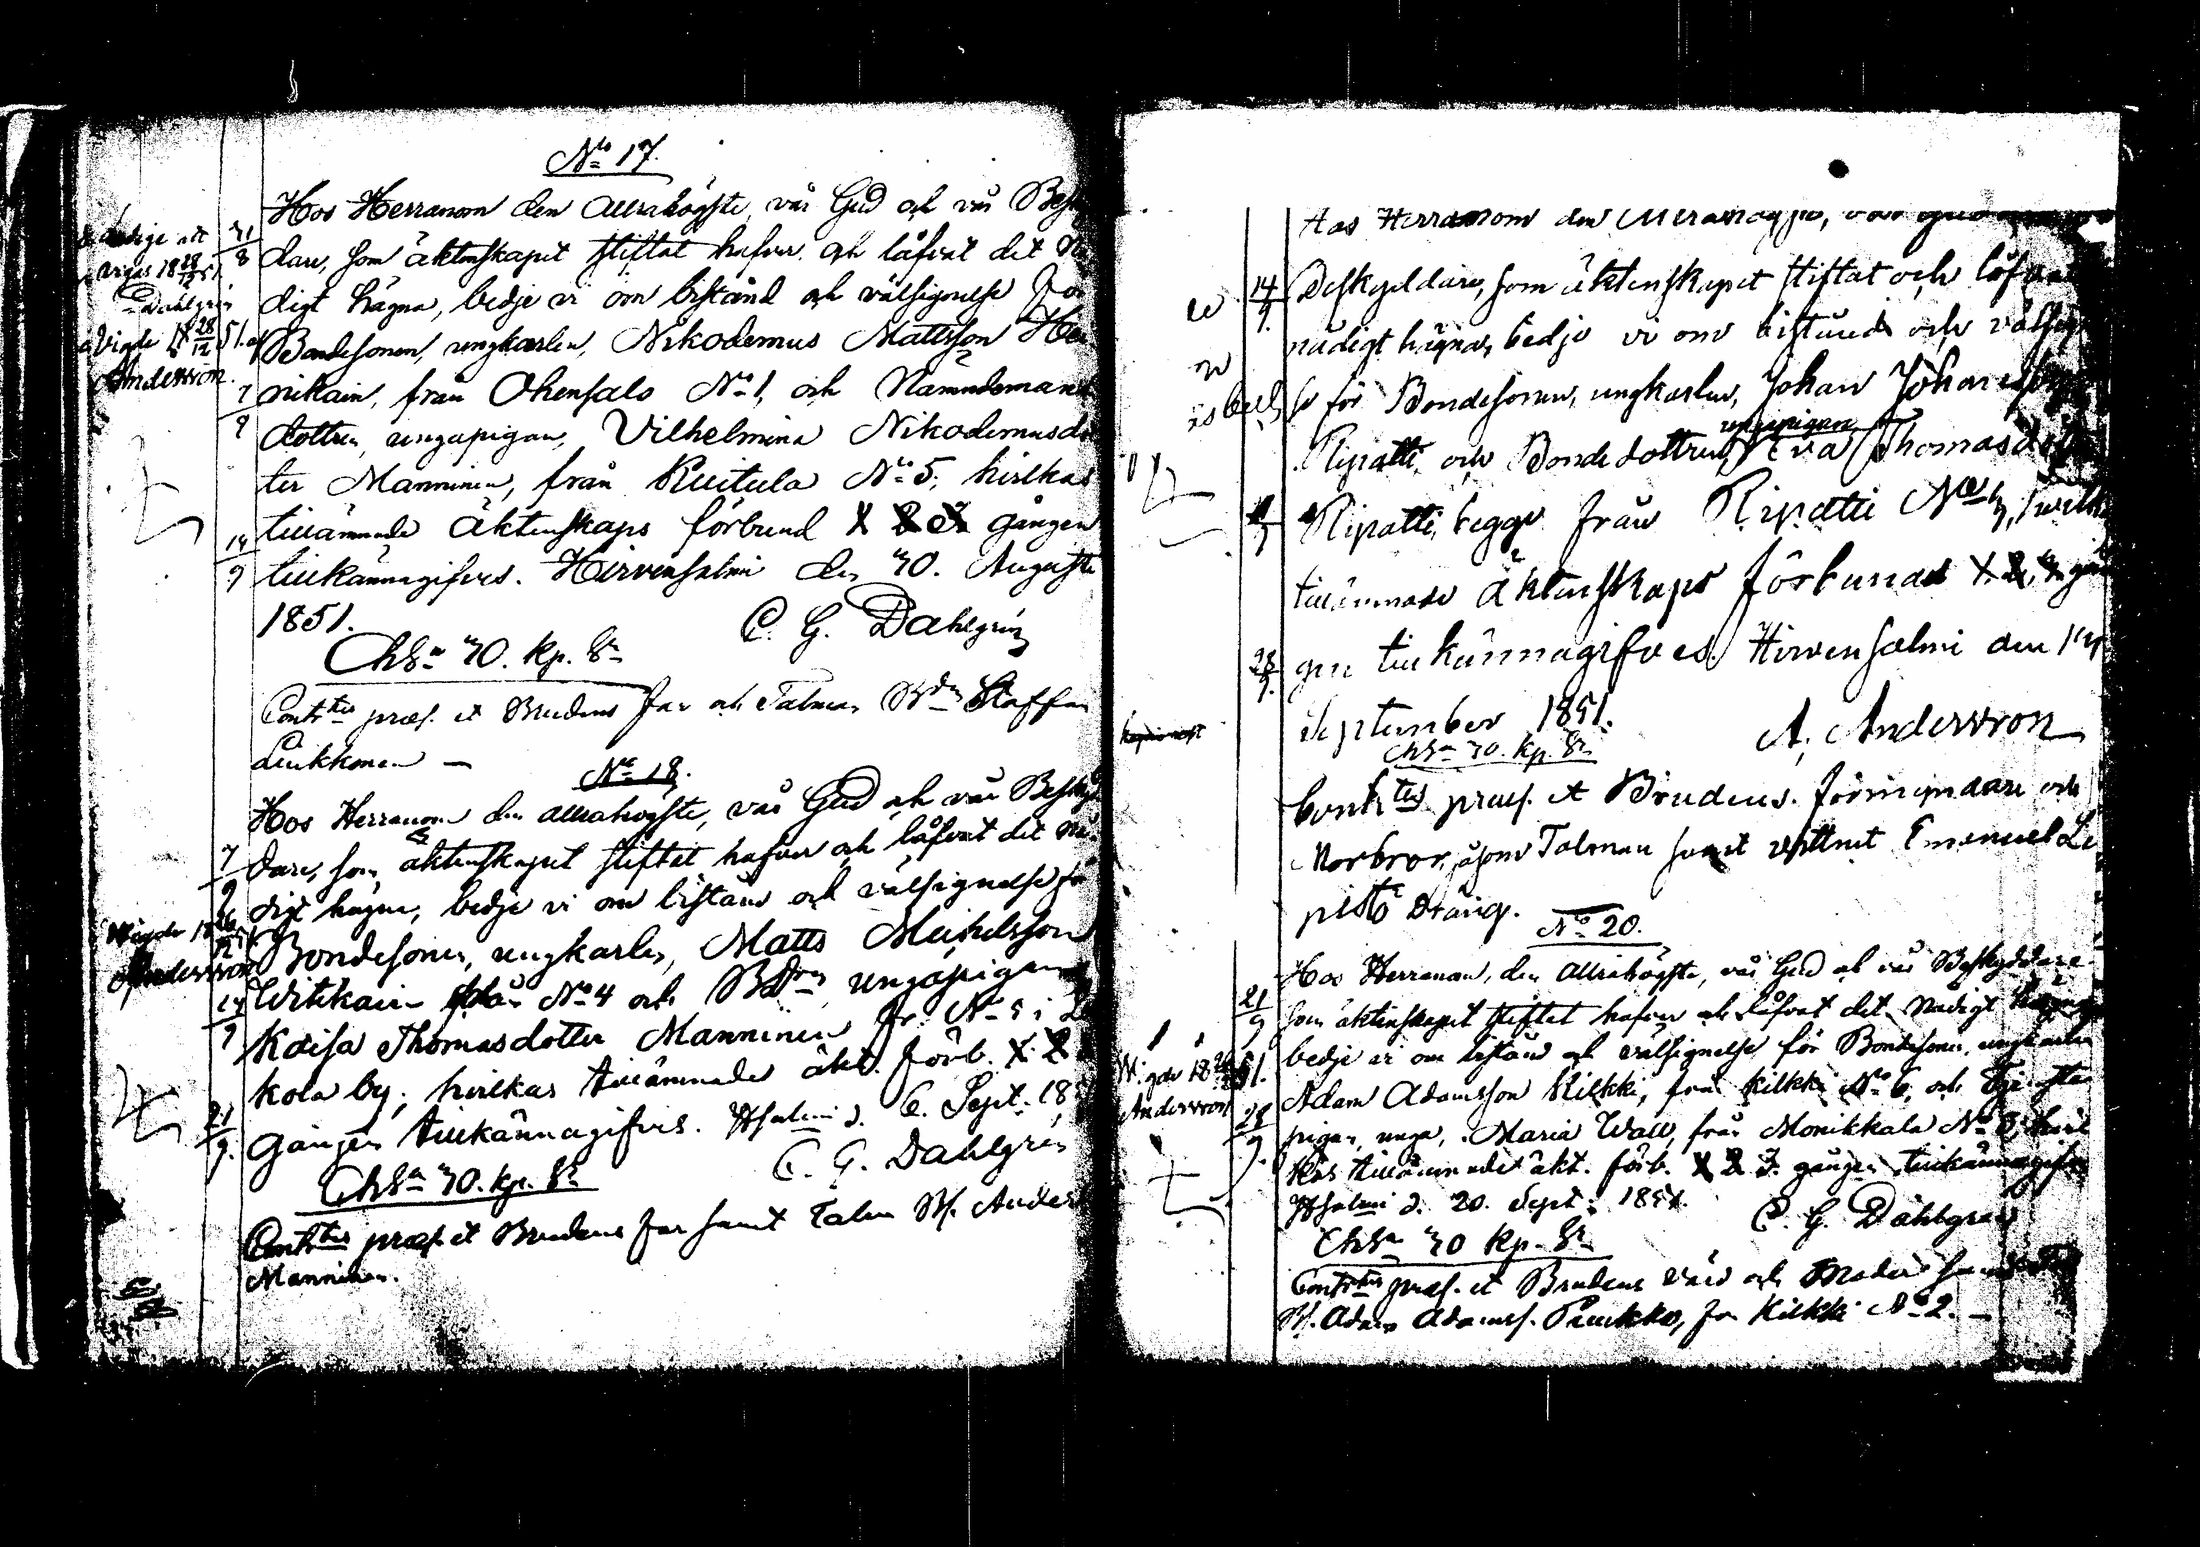 No 17.
Hos Herranom den Allrahögste, vår Gud och vår Besky
dare, som äktenskapet stiftat hafver och låfvat det
digt hägna, bedje vi om bistånd och välsignelse för
Bondesonen, ungkarlen, Nikodemus Mattsson
nikain, från Ohensalo No 1, och Nämndemans
dottren, ungapigan, Vilhelmina Nikodemusdot
ter Manninen, från Kuitula No 5, hvilkas
tillämnade Äktenskaps förbund 1 2 3 gången
tillkännagifves. Hirvensalmi den 30. Augusti
1851.
C. G. Dahlgrén
Chsn 30. kp. Sr
Contrtes præs. et Brudens far och Talman Staffan
Liukkonen —
No 18.
Hos Herranom den Allrahögste, vår Gud och vår Besky
dare, som äktenskapet stiftat hafver och låfvat det nå
digt hägna, bedje vi om bistånd och välsignelse för
Bondesonen, ungkarlen, Matts Michelsson
Witikain från No 4 och ungapigan
Kaisa Thomasdotter Manninen fr. No 5 i
kola by, hvilkas tillämnade äkt. förb. 1. 2
gången tillkännagifves. Hsalmi d. 6. Sept. 18
C. G. Dahlgrén
Chsn 30. kp. Sr
Contrtes præs. et Brudens far samt Talm Anders
Manninen.
28/12 51.
Dahlgrén
Vigde 18 28/12 51.
Andersson.
31/8
7/9
14/9
7/9
Vigde
Andersson
14/9
21/9.
Hos Herranom den Allrahögste, vår Gud
Beskyddare, som äktenskapet stiftat och låfvat
nådigt hägna, bedje vi om bistånd och välsignel
se för Bondesonen, ungkarlen, Johan Johansson
ungapigan
Ripatti, och Bondedottren, Eva Thomasdotter
Ripatti, begge från Ripatti No hvilk
tillämnade äktenskaps förbund 1. 2. 3. gån
gen tillkännagifves. Hirvensalmi den 14
September 1851.
A. Andersson
Chsn 30. kp. Sr
Contrtes præs. et Brudens förmyndare och
Morbror, såsom Talman samt vittnet Emanuel
Dräng.
No 20.
Hos Herranom, den Allrahögste, vår Gud och vår Beskyddare
som äktenskapet stiftat hafver och låfvat det nådigt hägna
bedje vi om bistånd och välsignelse för Bondesonen, ungkarlen
Adam Adamsson Kilkki, från Kilkki No 6, och Tjenste
pigan, unga, Maria Wall, från Monikkala No 8, hvil
kas tillämnade äkt. förb. 1 2 3. gången tillkännagifves
Hsalmi d. 20. Sept. 1851.
C. G. Dahlgrén
Chsn 30 kp. Sr
Contrtes præs. et Brudens värd och Moder samt
Adam Adamss. Puukko, fr. Kilkki No 2. —
14/9.
28/9.
21/9
28/9
51.
Andersson